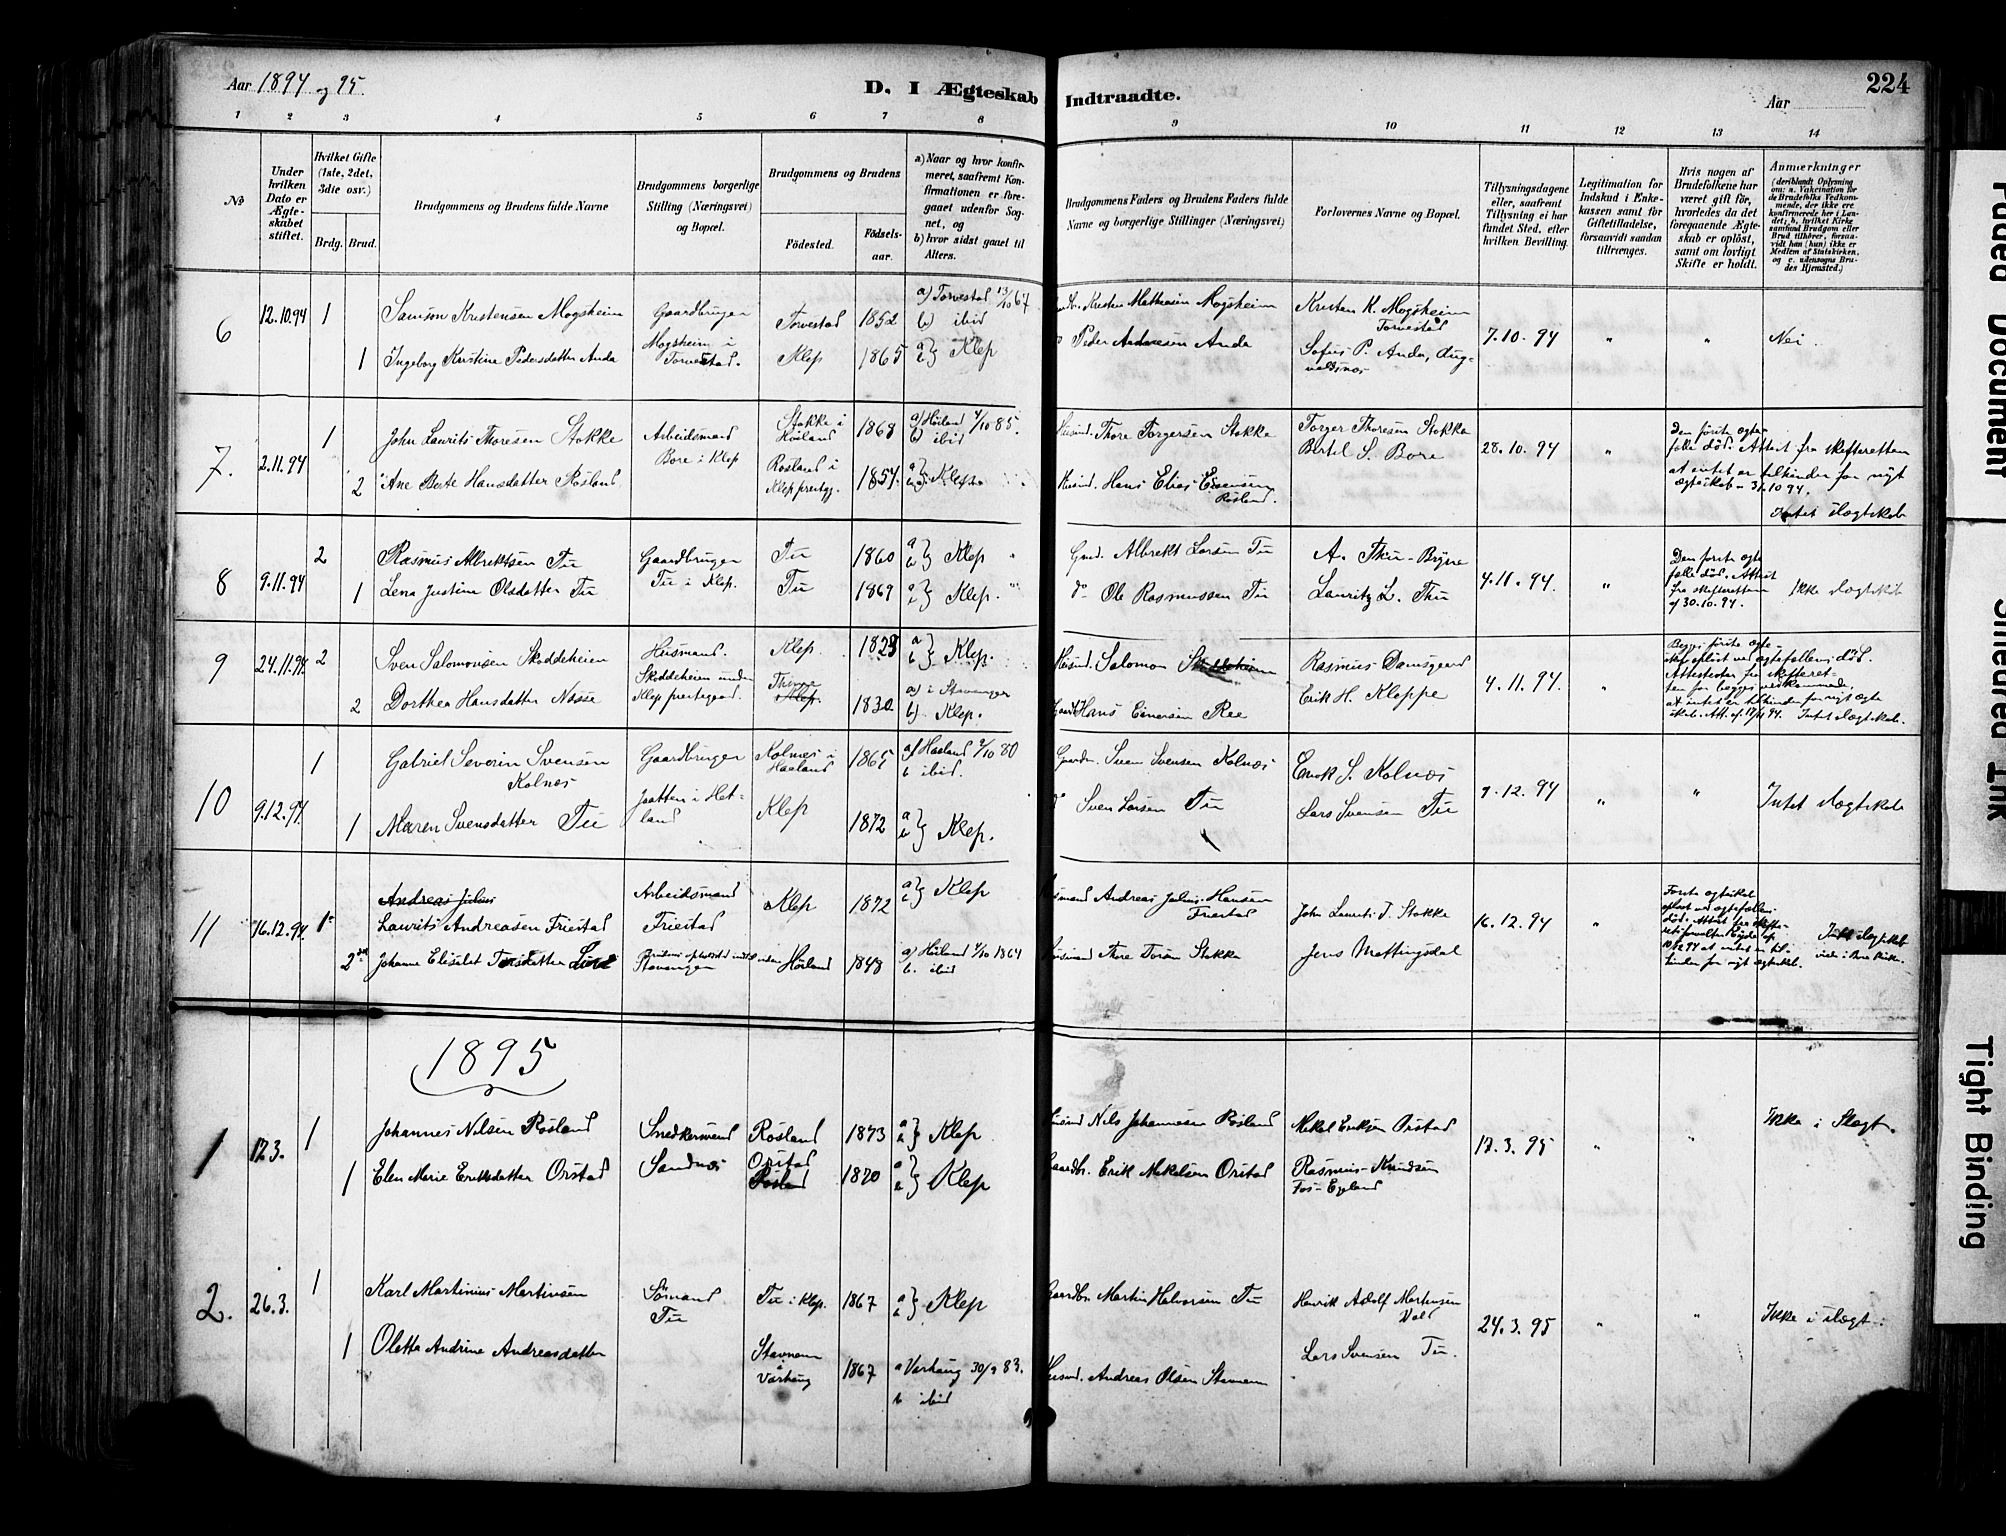 Aar 1894 og 95.
D. I Ægteskab Indtraadte.
Aar
224
1 2 3 4 5 6 7 8 9 10 11 12 13 14
No
Under hvilken Dato er Ægteskabet stiftet.
Hvilket Gifte (1ste, 2det, 3die osv.)
Brdg. Brud.
Brudgommens og Brudens fulde Navne
Brudgommens borgerlige Stilling (Næringsvei) og Bopæl.
Brudgommens og Brudens
Fødested.
Fødselsaar.
a) Naar og hvor konfirmeret, saafremt Konfirmationen er foregaaet udenfor Sognet, og
b) hvor sidst gaaet til Alters.
Brudgommens Faders og Brudens Faders fulde Navne og borgerlige Stillinger (Næringsvei)
Forlovernes Navne og Bopæl.
Tillysningsdagene eller, saafremt Tillysning ei har fundet Sted, efter hvilken Bevilling.
Legitimation for Indskud i Enkekassen samt for Giftetilladelse, forsaavidt saadan tiltrænges.
Hvis nogen af Brudefolkene har været gift før, hvorledes da det foregaaende Ægteskab er opløst, samt om lovligt Skifte er holdt.
Anmærkninger
(deriblandt Oplysning om: a. Vakcination for de Brudefolks Vedkommende, der ikke ere konfirmerede her i Landet; b. hvilket Kirkesamfund Brudgom eller Brud tilhører, forsaavidt han (hun) ikke er Medlem af Statskirken, og c. udensogns Brudes Hjemsted.)
6 12.10.94 1 Samson Kristensen Mogsheim Gaardbruger Torvestad 1852 a) Torvestad 13/10 67
b) ibid
Mogsheim i Torvestad.
Kristen Mathiasen Mogsheim
Kristen K. Mogsheim Torvestad
7.10.94 " " Nei.
1 Ingeborg Kristine Pedersdatter Anda Klep 1865 a b } Klep
Peder Andreasen Anda
Sofus P. Anda, Augvaldsnes
7. 2.11.94 1 John Laurits Thoresen Stokke Arbeidsmand Bore i Klep Stokke i Høiland 1868 a) Høiland 4/10 85.
b) ibid
Husmd. Thore Torgersen Stokke
Torger Thoresen Stokke
Bertel S. Bore
28.10.94 "
Den første ægtefælle død. Attest fra skifteretten
at intet er til hinder for nyt
ægteskab 31.10.94.
Intet slægtskab
2 Ane Berte Hansdatter Røsland Røsland i Klep prestegj. 1854. a b } Klep
Husmd. Hans Elias Røsland.
8 9.11.94 2 Rasmus Albrektsen Tu Gaardbruger Tu i Klep. Tu 1860 a b } Klep
Gmd. Albrekt Larsen Tu
A. Thu-Bryne
4.11.94. "
Den første ægtefælle død. Attest
fra skifteretten
af 30.10.94.
Ikke slægtskab
1 Lena Justine Olsdatter Tu Tu 1869 a b } Klep.
do Ole Rasmussen Tu
Lauritz L. Thu
9 24.11.94. 2 Sven Salomonsen Skoddeheien Husmand. Klep. 1829 a b } Klep.
Skoddeheien under Klep prestegaard.
Husmd. Salomon Skoddeheien
Rasmus Damsgaard
4.11.94. "
Intet slægtskab.
2 Dorthea Hansdatter Næsse Thime Klep. 1830 a) i Stavanger
b) Klep.
Hans Einersen Ree
Erik H. Kleppe
10 9.12.94. 1 Gabriel Severin Svensen Kolnes Gaardbruger Kolnes i Haaland 1865 a) Haaland 9/10 80
b ibid.
Jaatten i Hetland
Gaardm. Sven Svensen Kolnes
Enok S. Kolnes
9.12.94 " " Intet slægtskab
1 Maren Svensdatter Tu Klep 1872 a b } Klep.
do Sven Larsen Tu
Lars Svensen Tu
11 16.12.94 1 Andreas Julius
Laurits Andreasen Friestad Arbeidsmand Friestad Klep 1872 a b } Klep
Andreas Julius Hansen Friestad
John Laurits T. Stokke
16.12.94 "
Første ægteskab opløst ved ægtefællens død.
Intet slægtskab
2 Johanne Elisabet Høiland 1848 a) Høiland 4/10 1864
b. ibid
Husmand Thore Stokke
Jens Mattingsdal
1895
1 17.3. 1 Johannes Nilsen Røsland Snedkersvend Sandnes Røsland 1873 a b } Klep
Nils Johannesen Røsland
Mikal Eriksen Orstad
17.3.95 " " Ikke i Slægt.
1 Elen Marie Eriksdatter Orstad Orstad Røsland 1870 a b } Klep
Gaardbr. Erik Mikalsen Orstad
Rasmus Knudsen
Fos-Egeland
2. 26.3. 1 Karl Martinius Martinsen Sømand Tu Tu i Klep. 1867 a b } Klep
Gaardbr. Martin Halvorsen Tu
Henrik Adolf Martinsen
24.3.95 " " Ikke i slægt.
1 Oletta Andrine Andreasdatter Stavnem i Varhaug 1867 a Varhaug 30/9 83.
b ibid
Husmd. Andreas Olsen Stavnem
Lars Svensen Tu.
Faded Document
Smeared Ink
Tight Binding